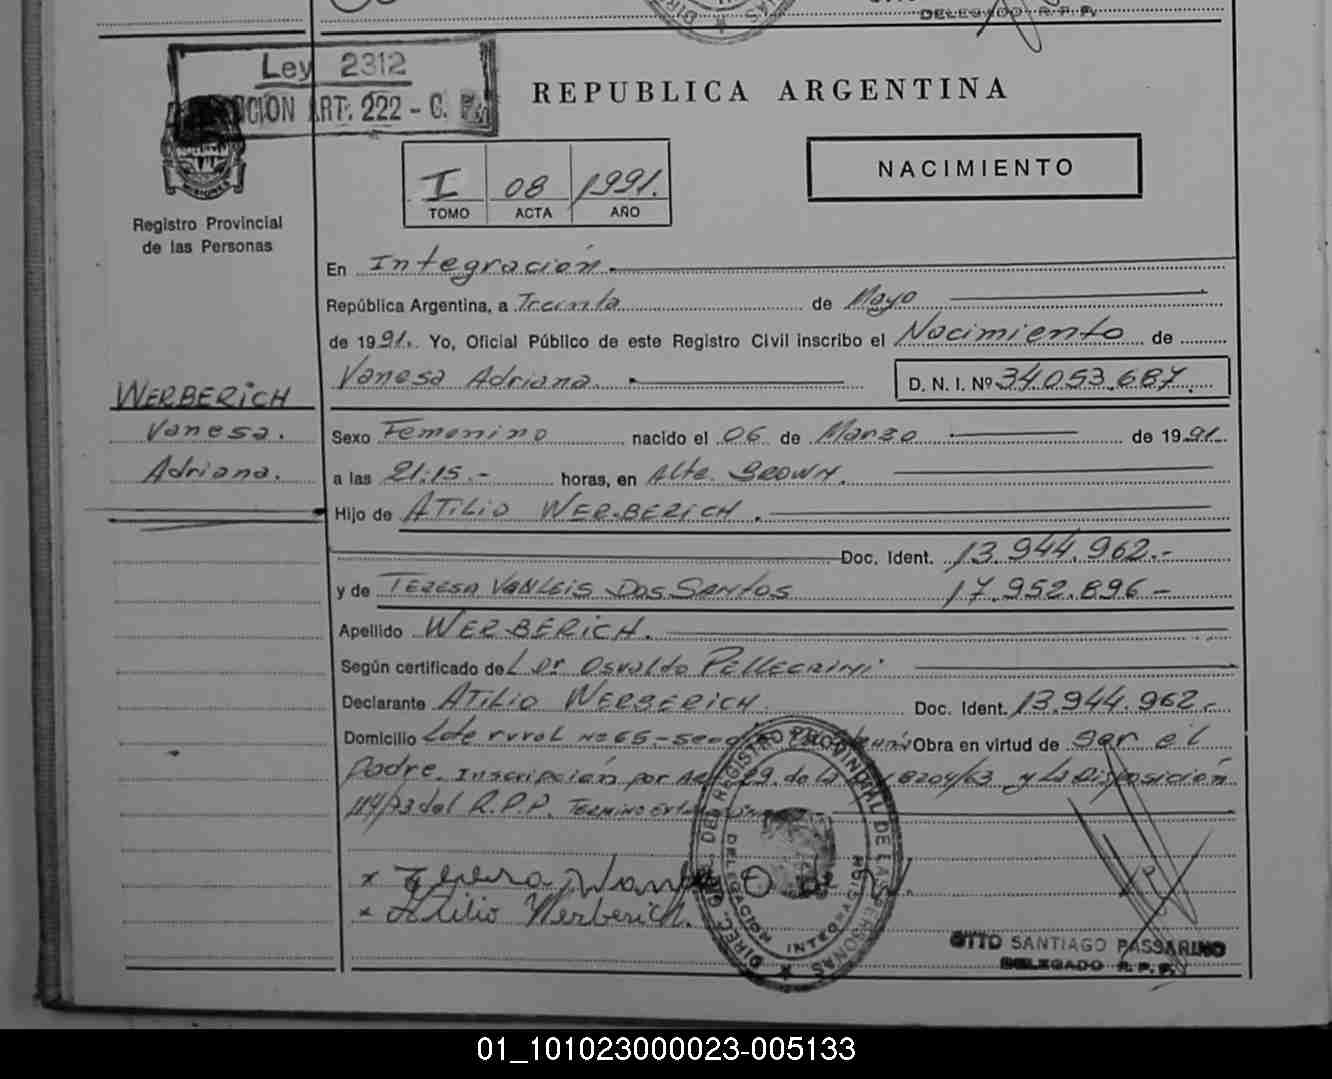 DELEGADO R.P.P.
Ley 2312
ART: 222 - C.
REPUBLICA ARGENTINA
NACIMIENTO
I 08 1991.
TOMO ACTA AÑO
MISIONES
Registro Provincial
de las Personas
En Integración.
República Argentina, a Treinta de Mayo
de 1991. Yo, Oficial Público de este Registro Civil inscribo el Nacimiento de
Vanesa Adriana. D. N. I. Nº 34.053.687.
WERBERICH
Vanesa.
Adriana.
Sexo Femenino nacido el 06 de Marzo de 1991.
a las 21:15.- horas, en Alte. BROWN.
Hijo de ATILIO WERBERICH.
Doc. Ident. 13.944.962.-
y de TERESA VANLEIS DOS SANTOS 17.952.896-
Apellido WERBERICH.
Según certificado de Dr Osvaldo PELLEGRINI
Declarante ATILIO WERBERICH Doc. Ident. 13.944.962.-
Domicilio Lote rural Nº 65- Obra en virtud de ser el
Padre. Inscripción por Art 29 de la 8204/63 y la Disposición
114/73 del R.P.P. TERMINO
x
x Atilio Werberich.
DIREC. GRAL. DEL REGISTRO PROVINCIAL DE LAS PERSONAS
DELEGACION INTEGRACION
OTTO SANTIAGO PASSARINO
DELEGADO R.P.P.
01_101023000023-005133